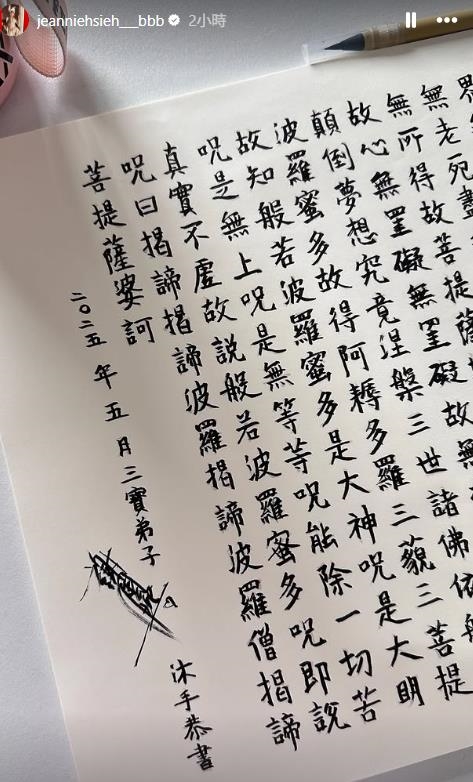 jeanniehsieh___bbb 2小時
界
無老死盡
無所得故菩提薩
故心無罣礙無罣礙故無
顛倒夢想究竟涅槃三世諸佛依般
波羅蜜多故得阿耨多羅三藐三菩提
故知般若波羅蜜多是大神咒是大明
咒是無上咒是無等等咒能除一切苦
真實不虛故說般若波羅蜜多咒即說
咒曰揭諦揭諦波羅揭諦波羅僧揭諦
菩提薩婆訶
二〇二五年五月三寶弟子
沐手恭書